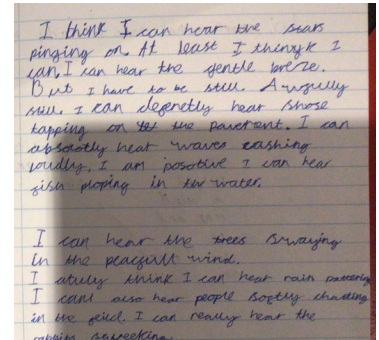 I think I can hear the stars
pinging on. At least I thinyk I
can, I can hear the gentle breze.
But I have to be still. Awfully
still. I can defenetly hear shose
tapping on the pavement. I can
absootly hear waves cashing
loudly. I am posotive I can hear
fish ploping in the water.
I can hear the trees swaying
in the peacfull wind.
I atuly think I can hear rain
I can also hear people softly chatting
in the feild. I can really hear the